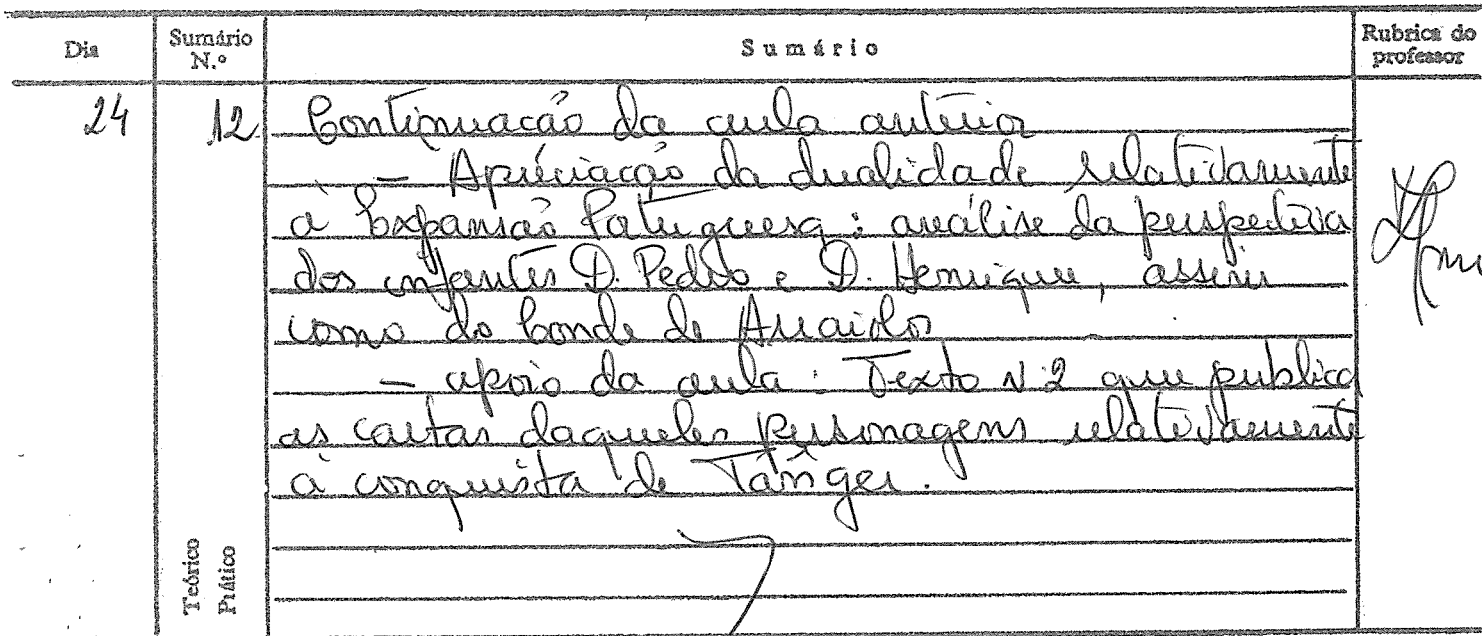 Dia Sumário N.º Sumário Rubrica do professor
24 12 Continuação da aula anterior
– Apreciação da dualidade relativamente
à Expansão Portuguesa: análise da perspectiva
dos infantes D. Pedro e D. Henrique, assim
como do Conde de Arraiolos
– apoio da aula: Texto N.2 que publica
as cartas daqueles personagens relativamente
à conquista de Tânger.
Teórico
Prático